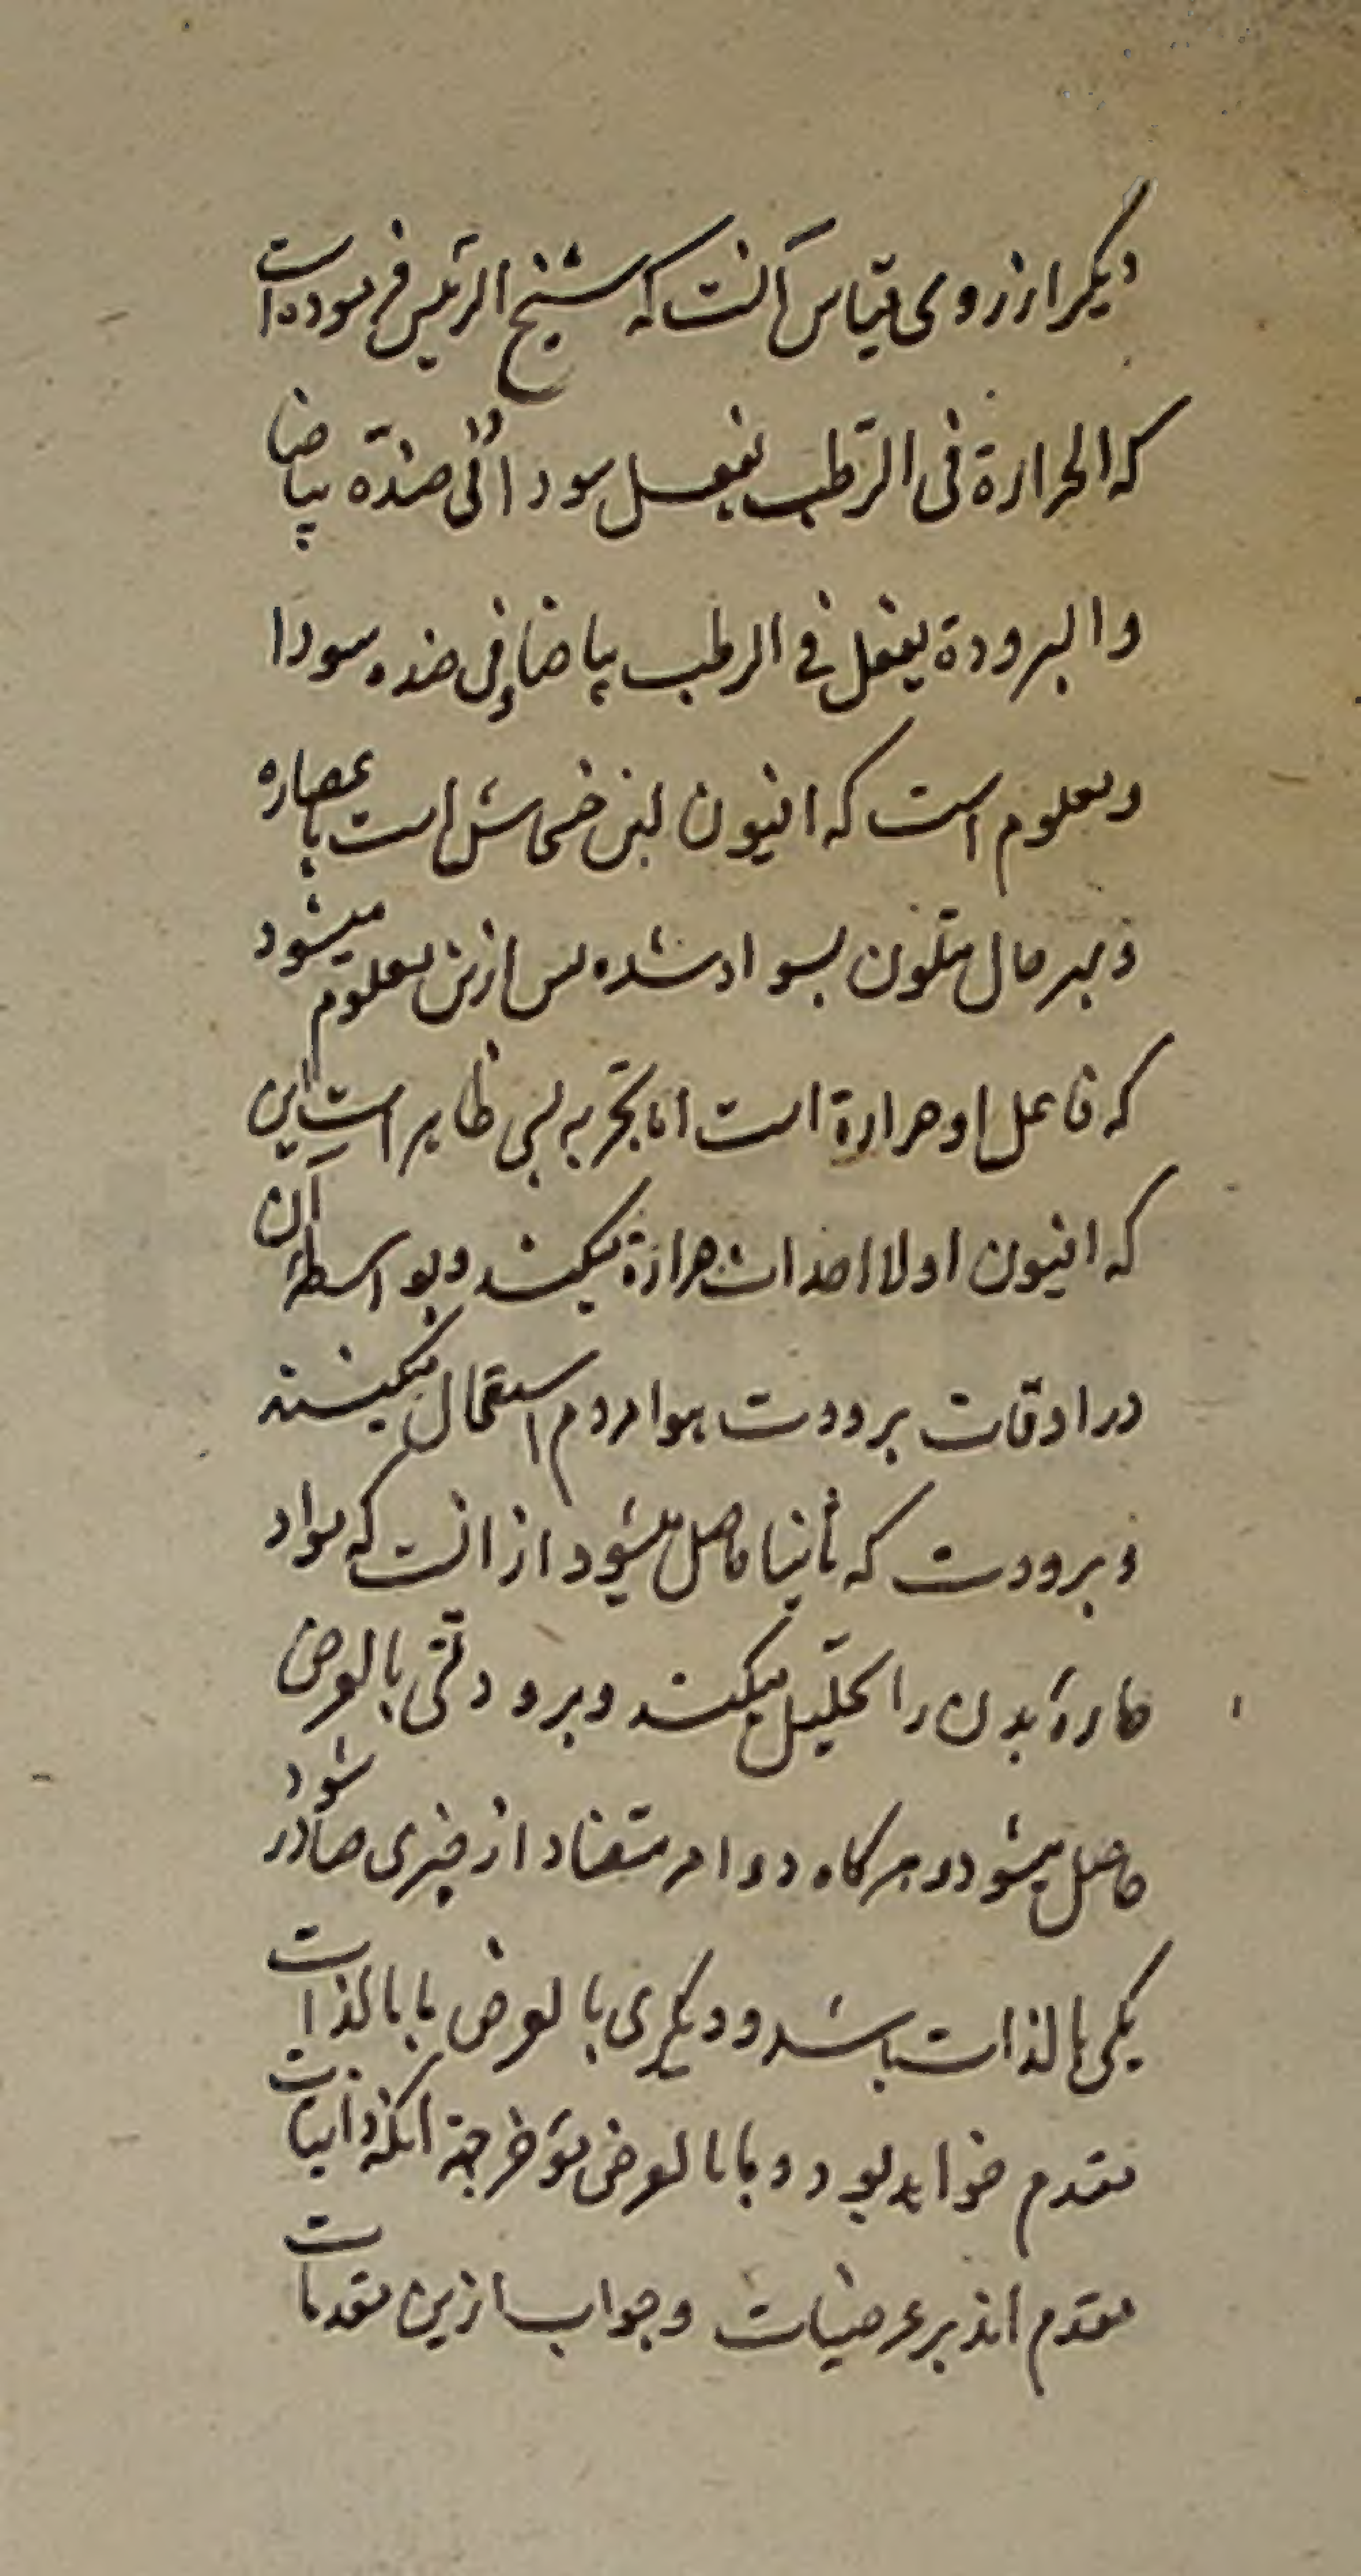 دیگر از روی قیاس آنست که شیخ الرئیس فرموده است
که الحرارة فی الرّطب یفعل سودا و فی ضدّه بیاضا
و البرودة یفعل فی الرطب بیاضا و فی ضده سودا
و معلوم است که افیون لبن خشخاش است یا عصاره
و بهر حال متلون بسواد شده پس ازین معلوم میشود
که فاعل او حرارة است اما تجربه پس ظاهر است این
که افیون اولا احداث حرارة میکند و بواسطهٔ آن
در اوقات برودت هوا مردم استعمال میکنند
و برودت که ثانیا حاصل میشود از انست که مواد
حارهٔ بدن را تحلیل میکند و برودتی بالعرض
حاصل میشود و هرگاه دو امر متضاد از چیزی صادر شود
یکی بالذات باشد و دیگری بالعرض ما بالذات
مقدم خواهد بود و ما بالعرض مؤخر جهة انکه ذاتیات
مقدم اند بر عرضیات و جواب ازین مقدمات